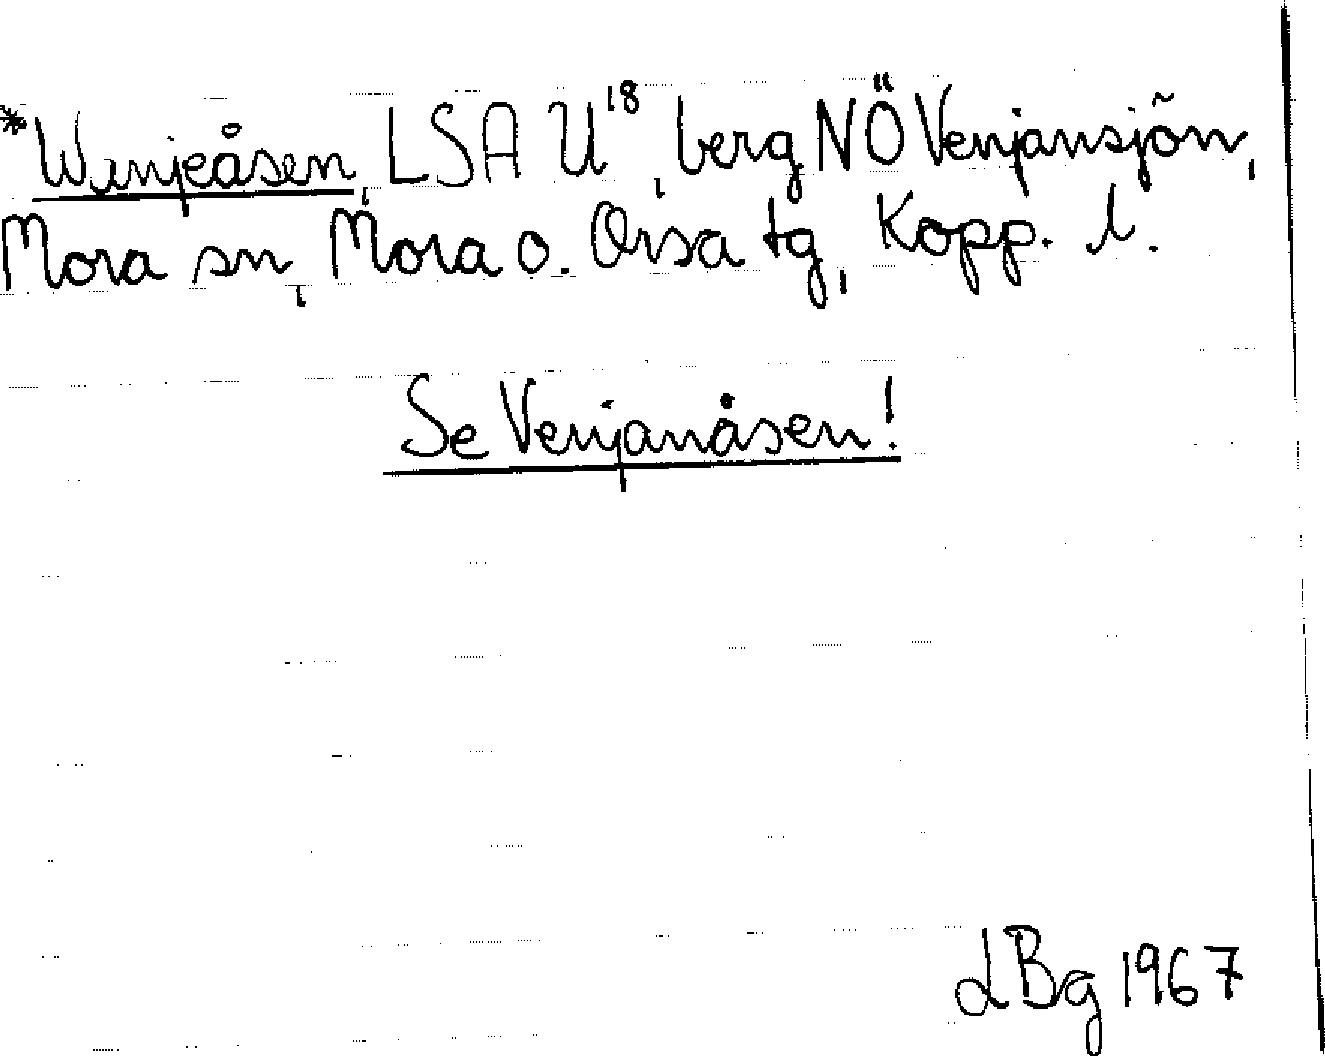 *Wenjeåsen, LSA U¹⁸, berg NÖ Venjansjön,
Mora sn, Mora o. Orsa tg, Kopp. l.
Se Venjanåsen!
LBg 1967